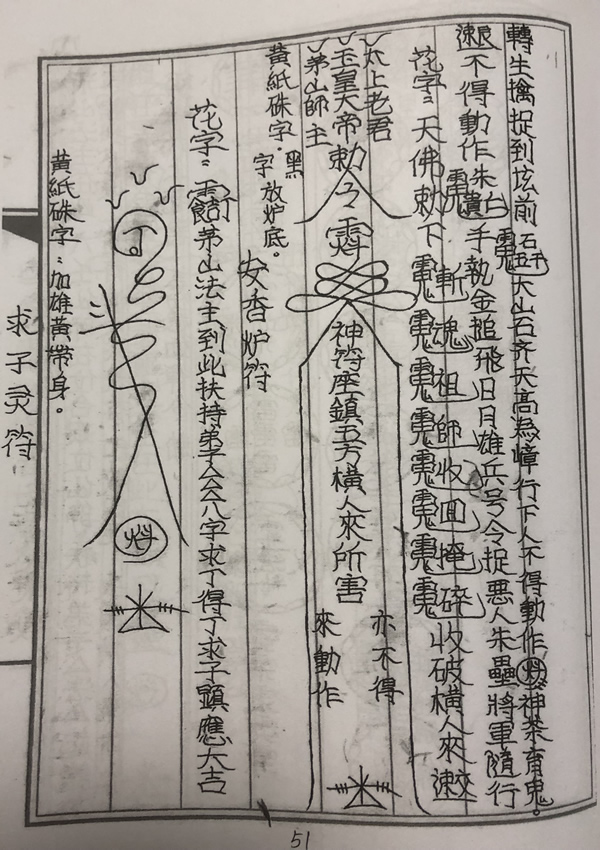 轉生擒捉到坛前
大山石齐天高為嶂行下人不得動作
神荼育鬼。
不得動作朱
手執金追飛日月雄兵号令捉惡人朱壘將軍隨行
花字：天佛勅下
斬魂祖師收回
碎
收破橫人來速
太上老君
玉皇大帝勅令
茅山師主
神符座鎮五方橫人來所害
亦不得
來動作
黃紙硃字．黑
字放炉底。
安香炉符
花字：
茅山法主到此扶持弟子厶厶八字求丁得丁求子顯應大吉
丁
黃紙硃字：加雄黃帶身。
求子灵符
51